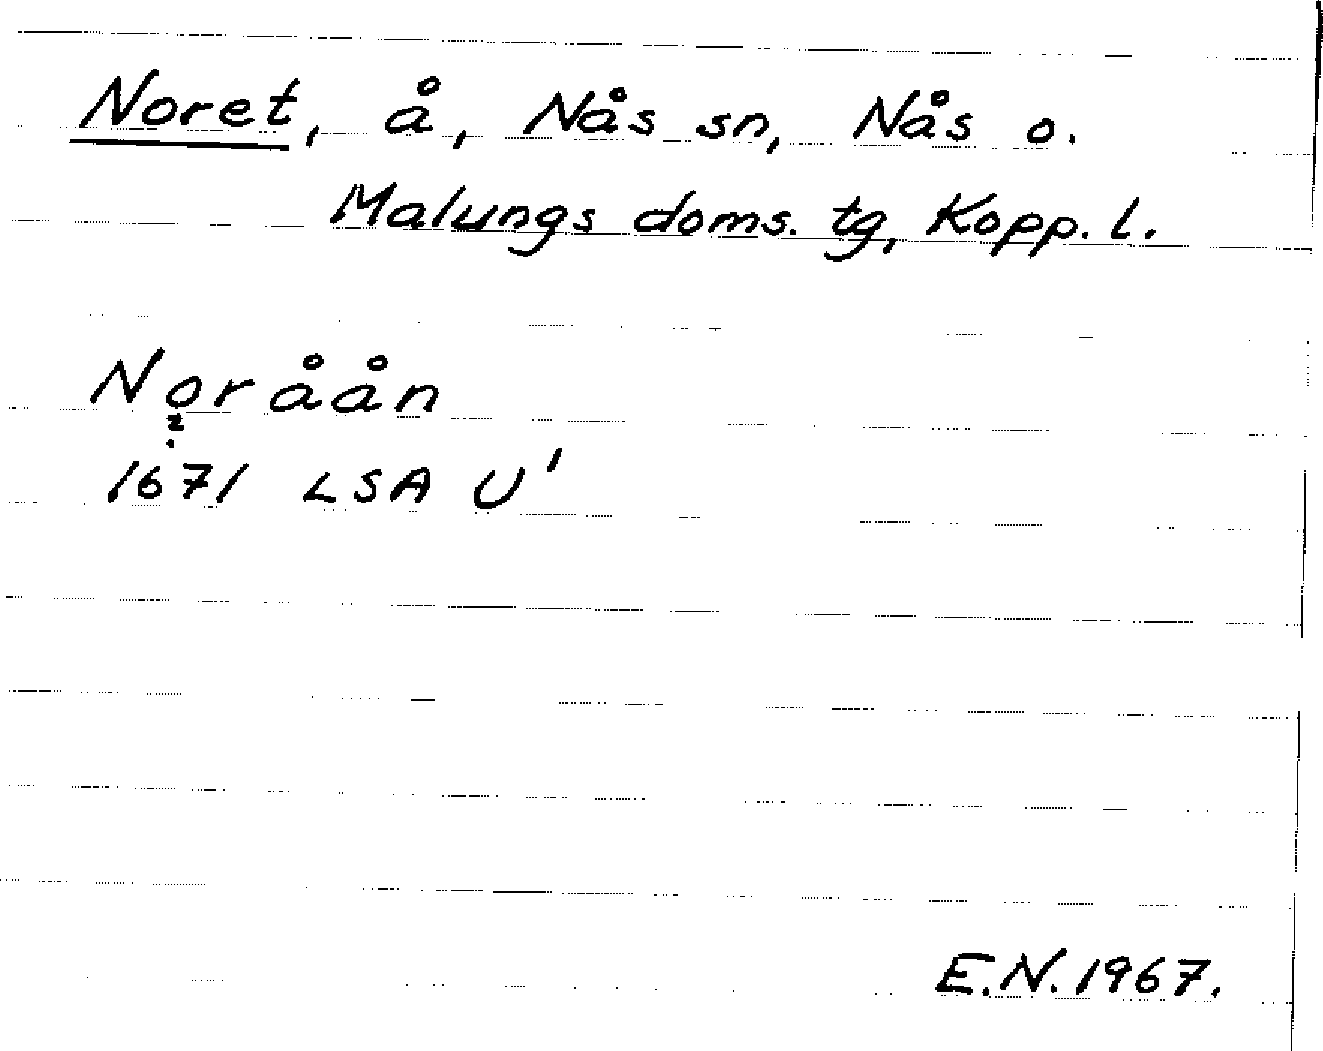 Noret, å, Nås sn, Nås o.
Malungs doms. tg, Kopp. l.
Noråån
?
1671 LSA U'
E.N. 1967.